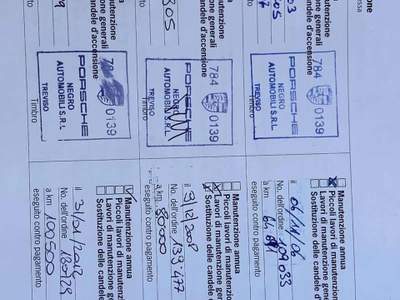 784 0139
PORSCHE
NEGRO
AUTOMOBILI S.R.L.
TREVISO
Timbro
Manutenzione annua
Piccoli lavori di manutenz
Lavori di manutenzione ge
Sostituzione delle candele
il 06/11/06
No. dell'ordine 109033
a km
eseguito contro pagamento
Manutenzione
zione generali
candele d'accensione
305
784 0139
PORSCHE
NEGRO
AUTOMOBILI S.R.L.
TREVISO
Timbro
Manutenzione annua
Piccoli lavori di manutenzione
Lavori di manutenzione gen
Sostituzione delle candele d
il 9/12/2008
No. dell'ordine 133477
a km 88000
eseguito contro pagamento
Manutenzione
zione generali
candele d'accensione
784 0139
PORSCHE
NEGRO
AUTOMOBILI S.R.L.
TREVISO
Timbro
Manutenzione annua
Piccoli lavori di manutenzione
Lavori di manutenzione
Sostituzione delle candele
il 31/01/2012
No. dell'ordine 180129
a km 100500
eseguito contro pagamento